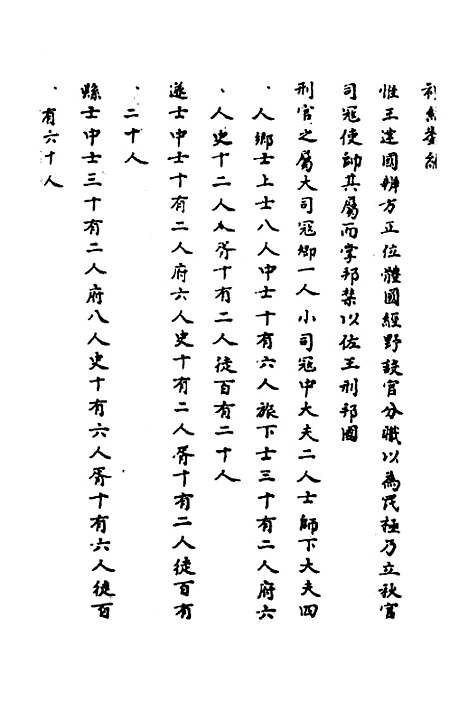 惟王建國辨方正位體國經野設官分職以為民極乃立秋官
司寇使帥其屬而掌邦禁以佐王刑邦國
刑官之屬大司寇卿一人小司寇中大夫二人士師下大夫四
人鄉士上士八人中士十有六人旅下士三十有二人府六
人史十二人人胥十有二人徒百有二十人
遂士中士十有二人府六人史十有二人胥十有二人徒百有
二十人
縣士中士三十有二人府八人史十有六人胥十有六人徒百
有六十人